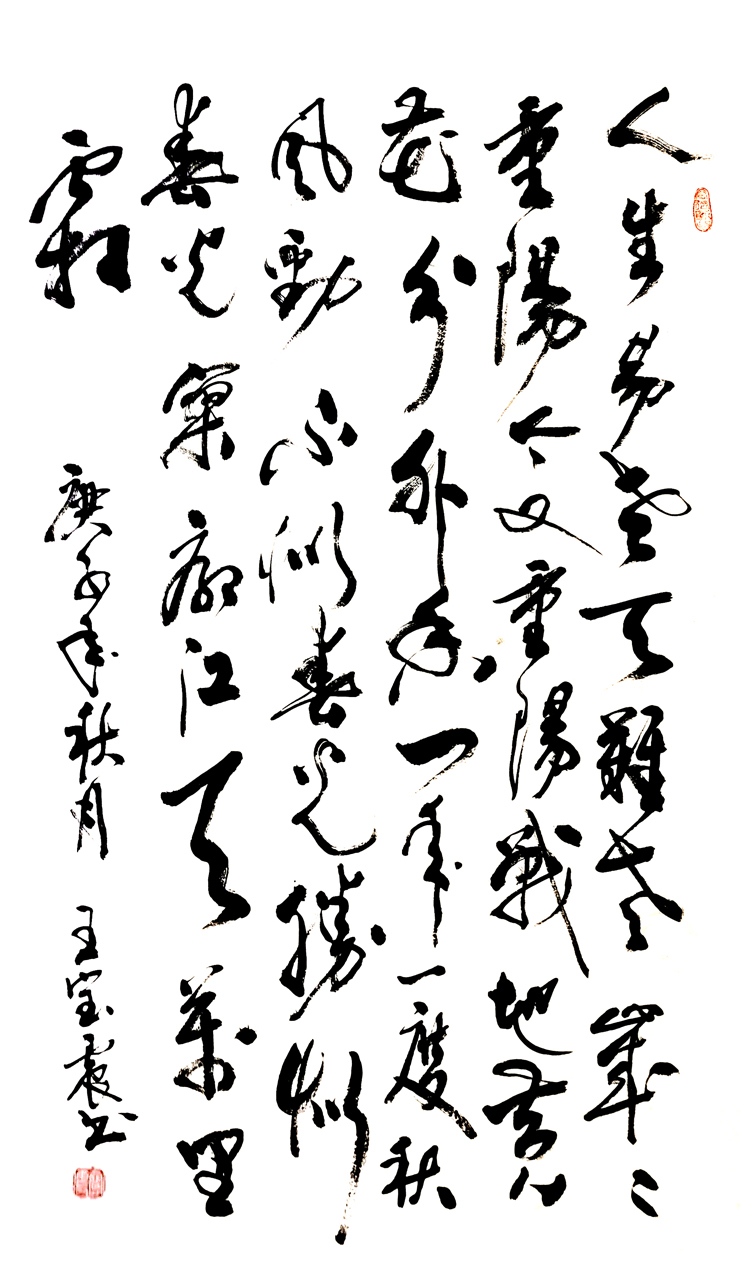 人生易老天難老歲〻
重陽今又重陽戰地黄
花分外香一年一度秋
風勁不似春光勝似
春光寥廓江天萬里
霜
庚子年秋月 王宝震书